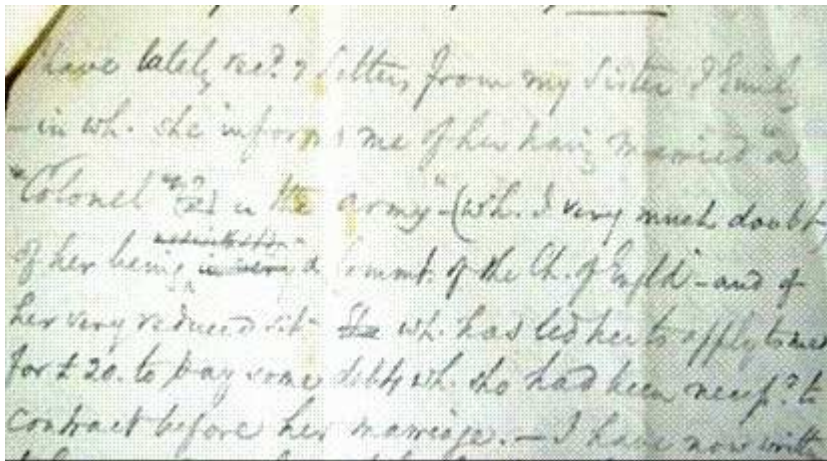 have lately recd. 2 letters from my Sister Emily
– in wh. she informs me of her having married "a
"Colonel in the army" – (wh. I very much doubt)
of her being a Commt. of the Ch. of Engld – and of
her very reduced sitn. wh. has led her to apply to me
for £20. to pay some debts wh. she had been necessd. to
contract before her marriage. – I have now written